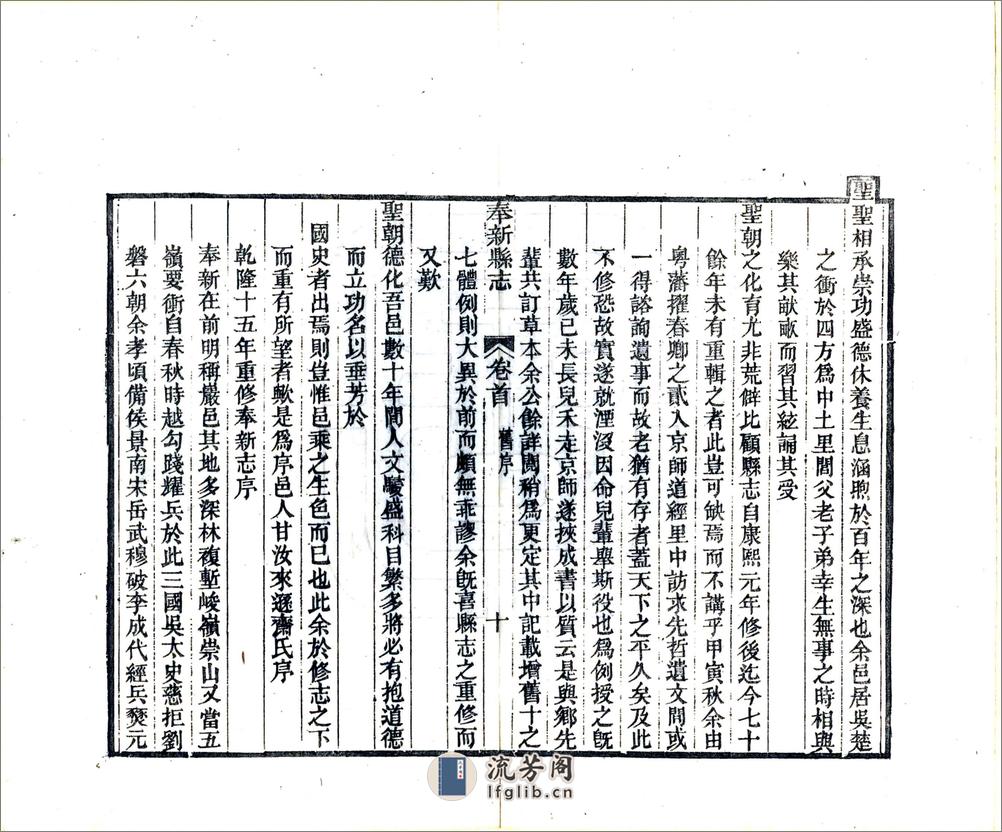 聖聖相承崇功盛德休養生息涵煦於百年之深也余邑居吳楚
之衝於四方爲中土里間父老子弟幸生無事之時相與
樂其猷畝而習其絃誦其受
聖朝之化育尤非荒僻比顧縣志自康熙元年修後迄今七十
餘年未有重輯之者此豈可缺焉而不講乎甲寅秋余由
粵藩擢春卿之貳入京師道經里中訪求先哲遺文間或
一得諮詢遺事而故老猶有存者蓋天下之平久矣及此
不修恐故實遂就湮沒因命兒輩舉斯役也爲例授之旣
數年歲己未長兒禾走京師遂挾成書以質云是與鄉先
輩共訂草本余公餘詳閱稍爲更定其中記載增舊十之
奉新縣志
卷首
舊序
十
七體例則大異於前而頗無乖謬余旣喜縣志之重修而
又歎
聖朝德化吾邑數十年間人文駿盛科目繁多將必有抱道德
而立功名以垂芳於
國史者出焉則豈惟邑乘之生色而已也此余於修志之下
而重有所望者歟是爲序邑人甘汝來遜齋氏序
乾隆十五年重修奉新志序
奉新在前明稱巖邑其地多深林複塹峻嶺崇山又當五
嶺要衝自春秋時越勾踐耀兵於此三國吳太史慈拒劉
磐六朝余孝頃備侯景南宋岳武穆破李成代經兵燹元
流芳阁
lfglib.cn